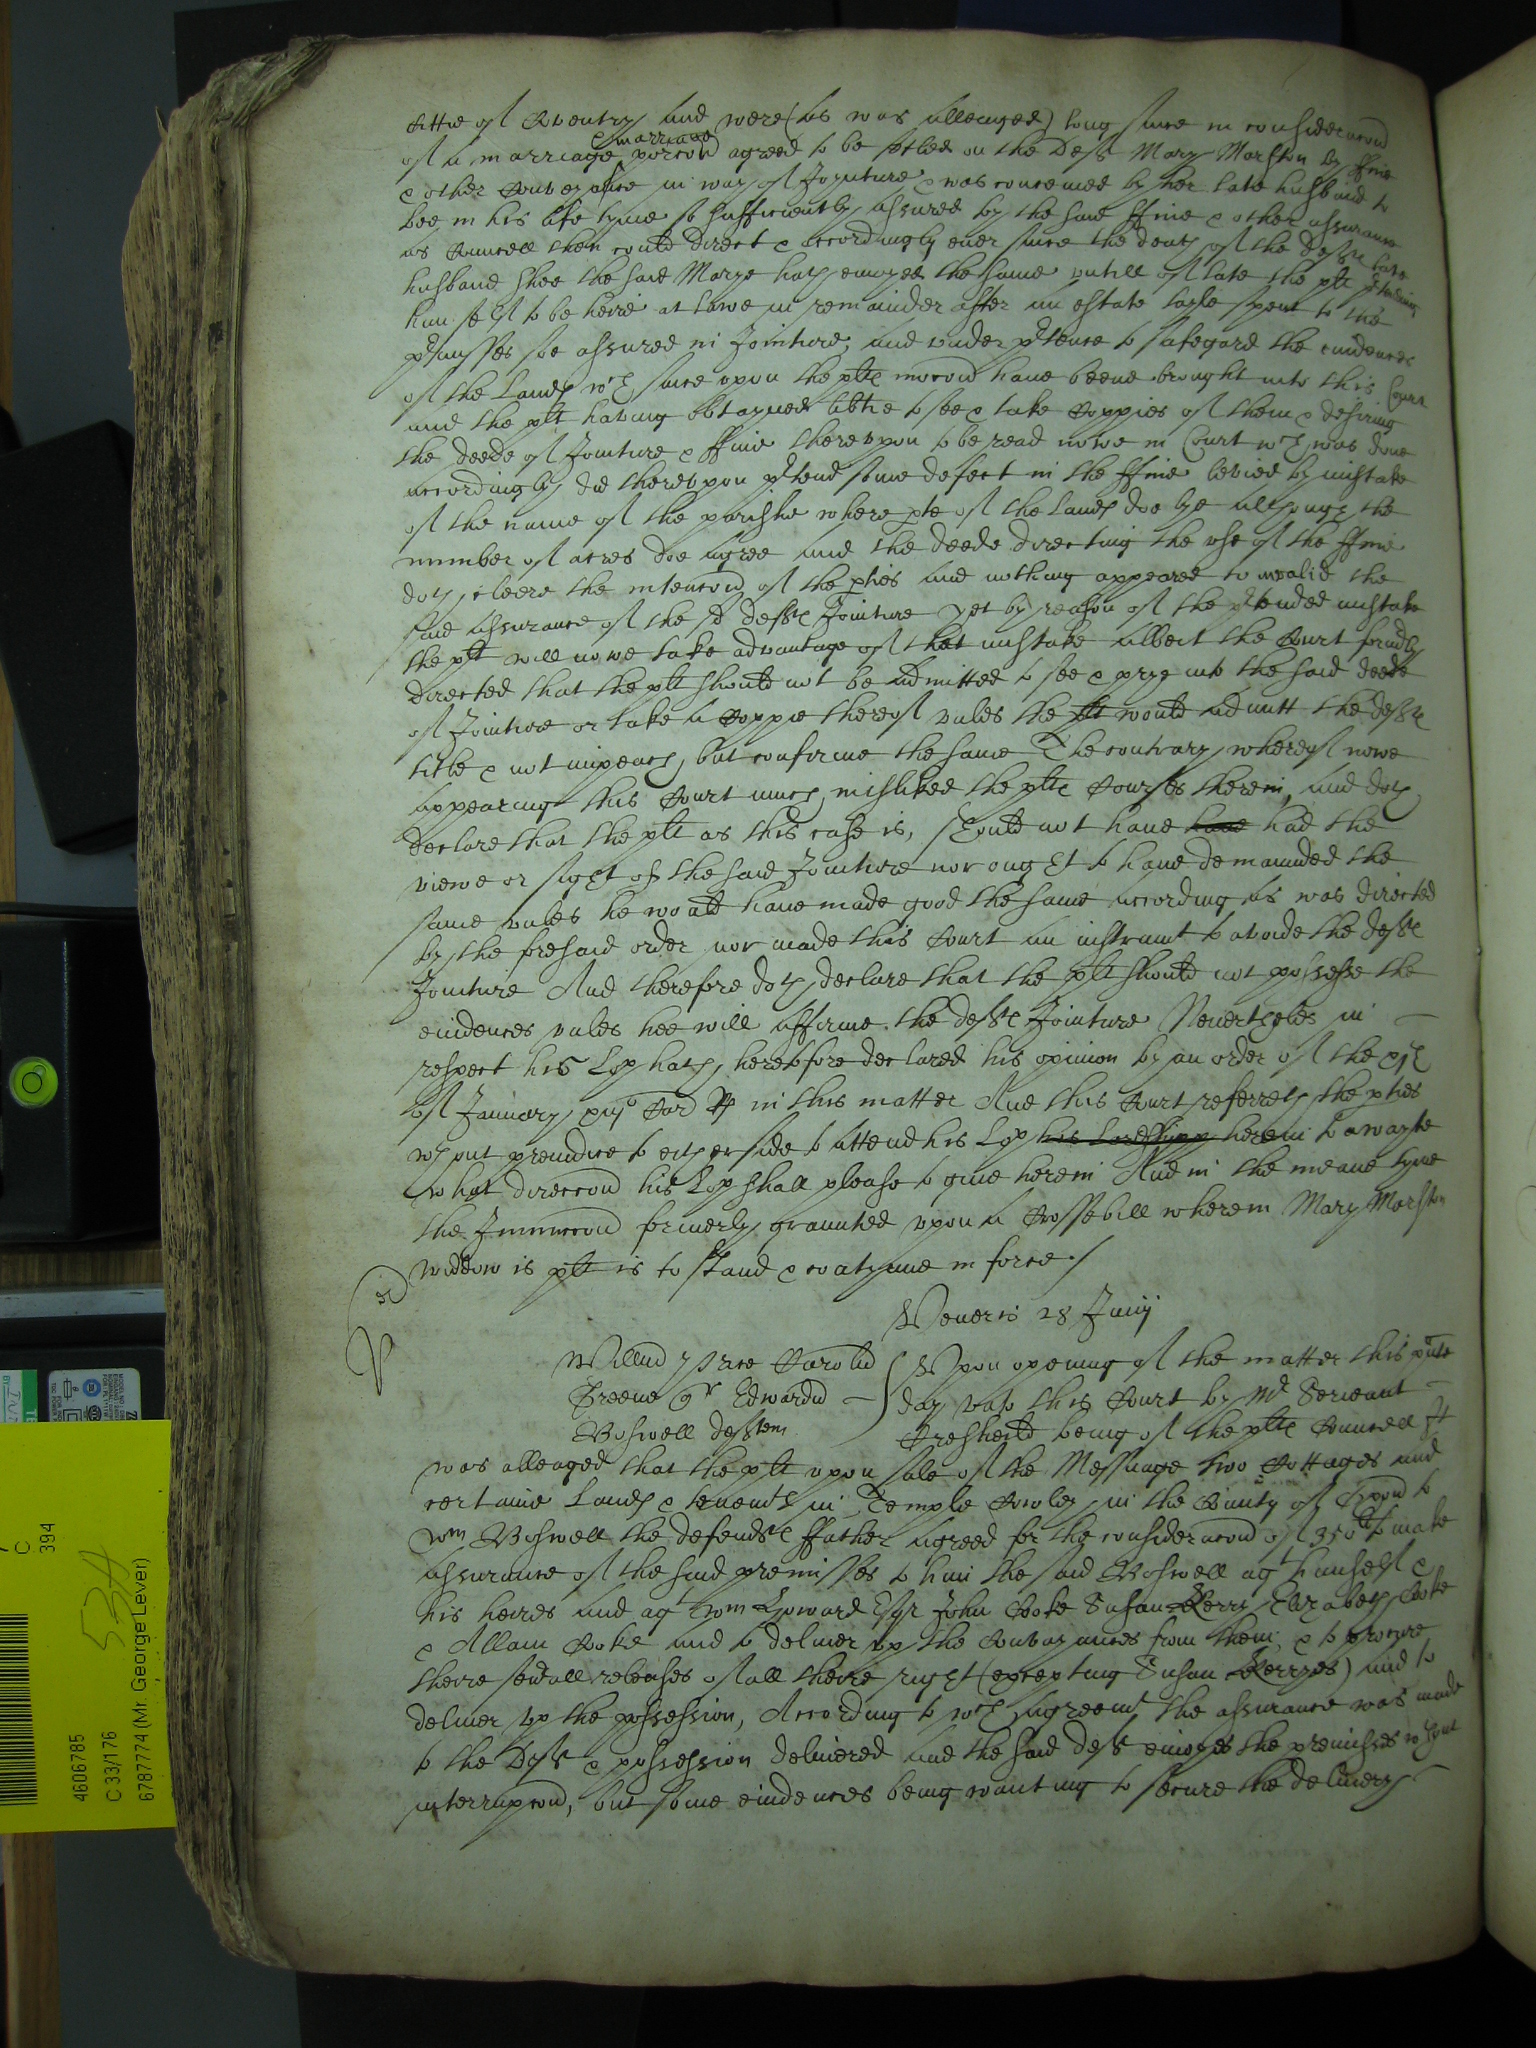 Cittie of Coventry and were (as was alleaged) long since in consideracon
of a marriage & marriage porcon agreed to be setled on the Deft Mary Marston by ffine
& other Conveyance in way of Joynture & was conceived by her late husband to
bee in his life tyme so sufficiently assured by the said ffine & other assurance
as Councell then could direct & accordingly ever since the death of the Defts late
husband shee the said Marye hath enioyed the same untill of late the plt p'tending
himself to be heire at lawe in remainder after an estate tayle spent to the
p'misses soe assured in Jointure, and under p'tence to safegard the evidences
of the Lands wch since upon the plts mocon have beene brought into this Court
and the plt having obtayned libtie to see & take Coppies of them & desiring
the deede of Jointure & ffine thereupon to be read nowe in Court wch was done
accordingly did thereupon p'tend some defect in the ffine levied by mistake
of the name of the parishe where pte of the Lands doe lye although the
number of acres doe agree and the deede directing the use of the ffine
doth cleere the intencon of the pties and nothing appeared to invalid the
said assurance of the sd Defts Jointure yet by reason of the p'tended mistake
the plt will nowe take advantage of that mistake albeit the Court formly
directed that the plt should not be admitted to see & prye into the said deede
of Jointure or take a Coppie thereof unles the plt would admitt the defts
title & not impeach, but confirme the same The contrary whereof nowe
appearing this Court much misliked the plts Courses therein, and doth
declare that the plt as this case is, should not have have had the
viewe or sight of the said Jointure nor ought to have demaunded the
same unles he would have made good the same according as was directed
by the foresaid order nor made this Court an instrumt to avoide the defts
Jointure And therefore doth declare that the plt should not possesse the
evidences unles hee will affirme the defts Jointure Nevertheles in
respect his Lop hath heretofore declared his opinion by an order of the
of January in this matter And this Court referreth the pties
wthout preiudice to either side to attend his Lop his Lordshipp herein to awayte
what direccon his Lop shall please to give herein And in the meane tyme
the Iniunccon formerly graunted upon a Crosse bill wherein Mary Marston
widdow is plt is to stand & contynue in force /
Veneris 28 Junij
Upon opening of the matter this p'nte
Greene qr Edwardu
day unto this Court by Mr Serieant
Boswell defftem
Cresheild being of the plts Councell It
was alleaged that the plt upon sale of the Messuage two Cottages and
certaine Lands & tenemts in Temple Cowley in the County of Oxon to
Wm Boswell the defendts ffather agreed for the consideracon of 350li to make
assurance of the said premisses to him the said Boswell agt himself &
his heires and agt Wm Howard Esqr John Cooke Susan Kerry Elizabeth Cooke
& Allam Cooke and to deliver up the Convayances from them, & to procure
theire sevall releases of all theire right (excepting Susan Kerryes) and to
deliver up the possession, According to wch agreemt the assurance was made
to the Deft & possession delivered and the said deft enioyes the premisses wthout
interrupcon, but some evidences being wanting to secure the delivery
4606785
C 33/176
6787774 (Mr. George Lever)
C
394
53A